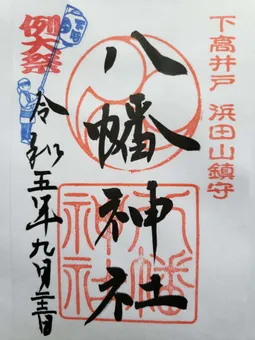 下高井戸 浜田山鎮守
八幡神社
八幡
神社
例大祭
令和五年九月